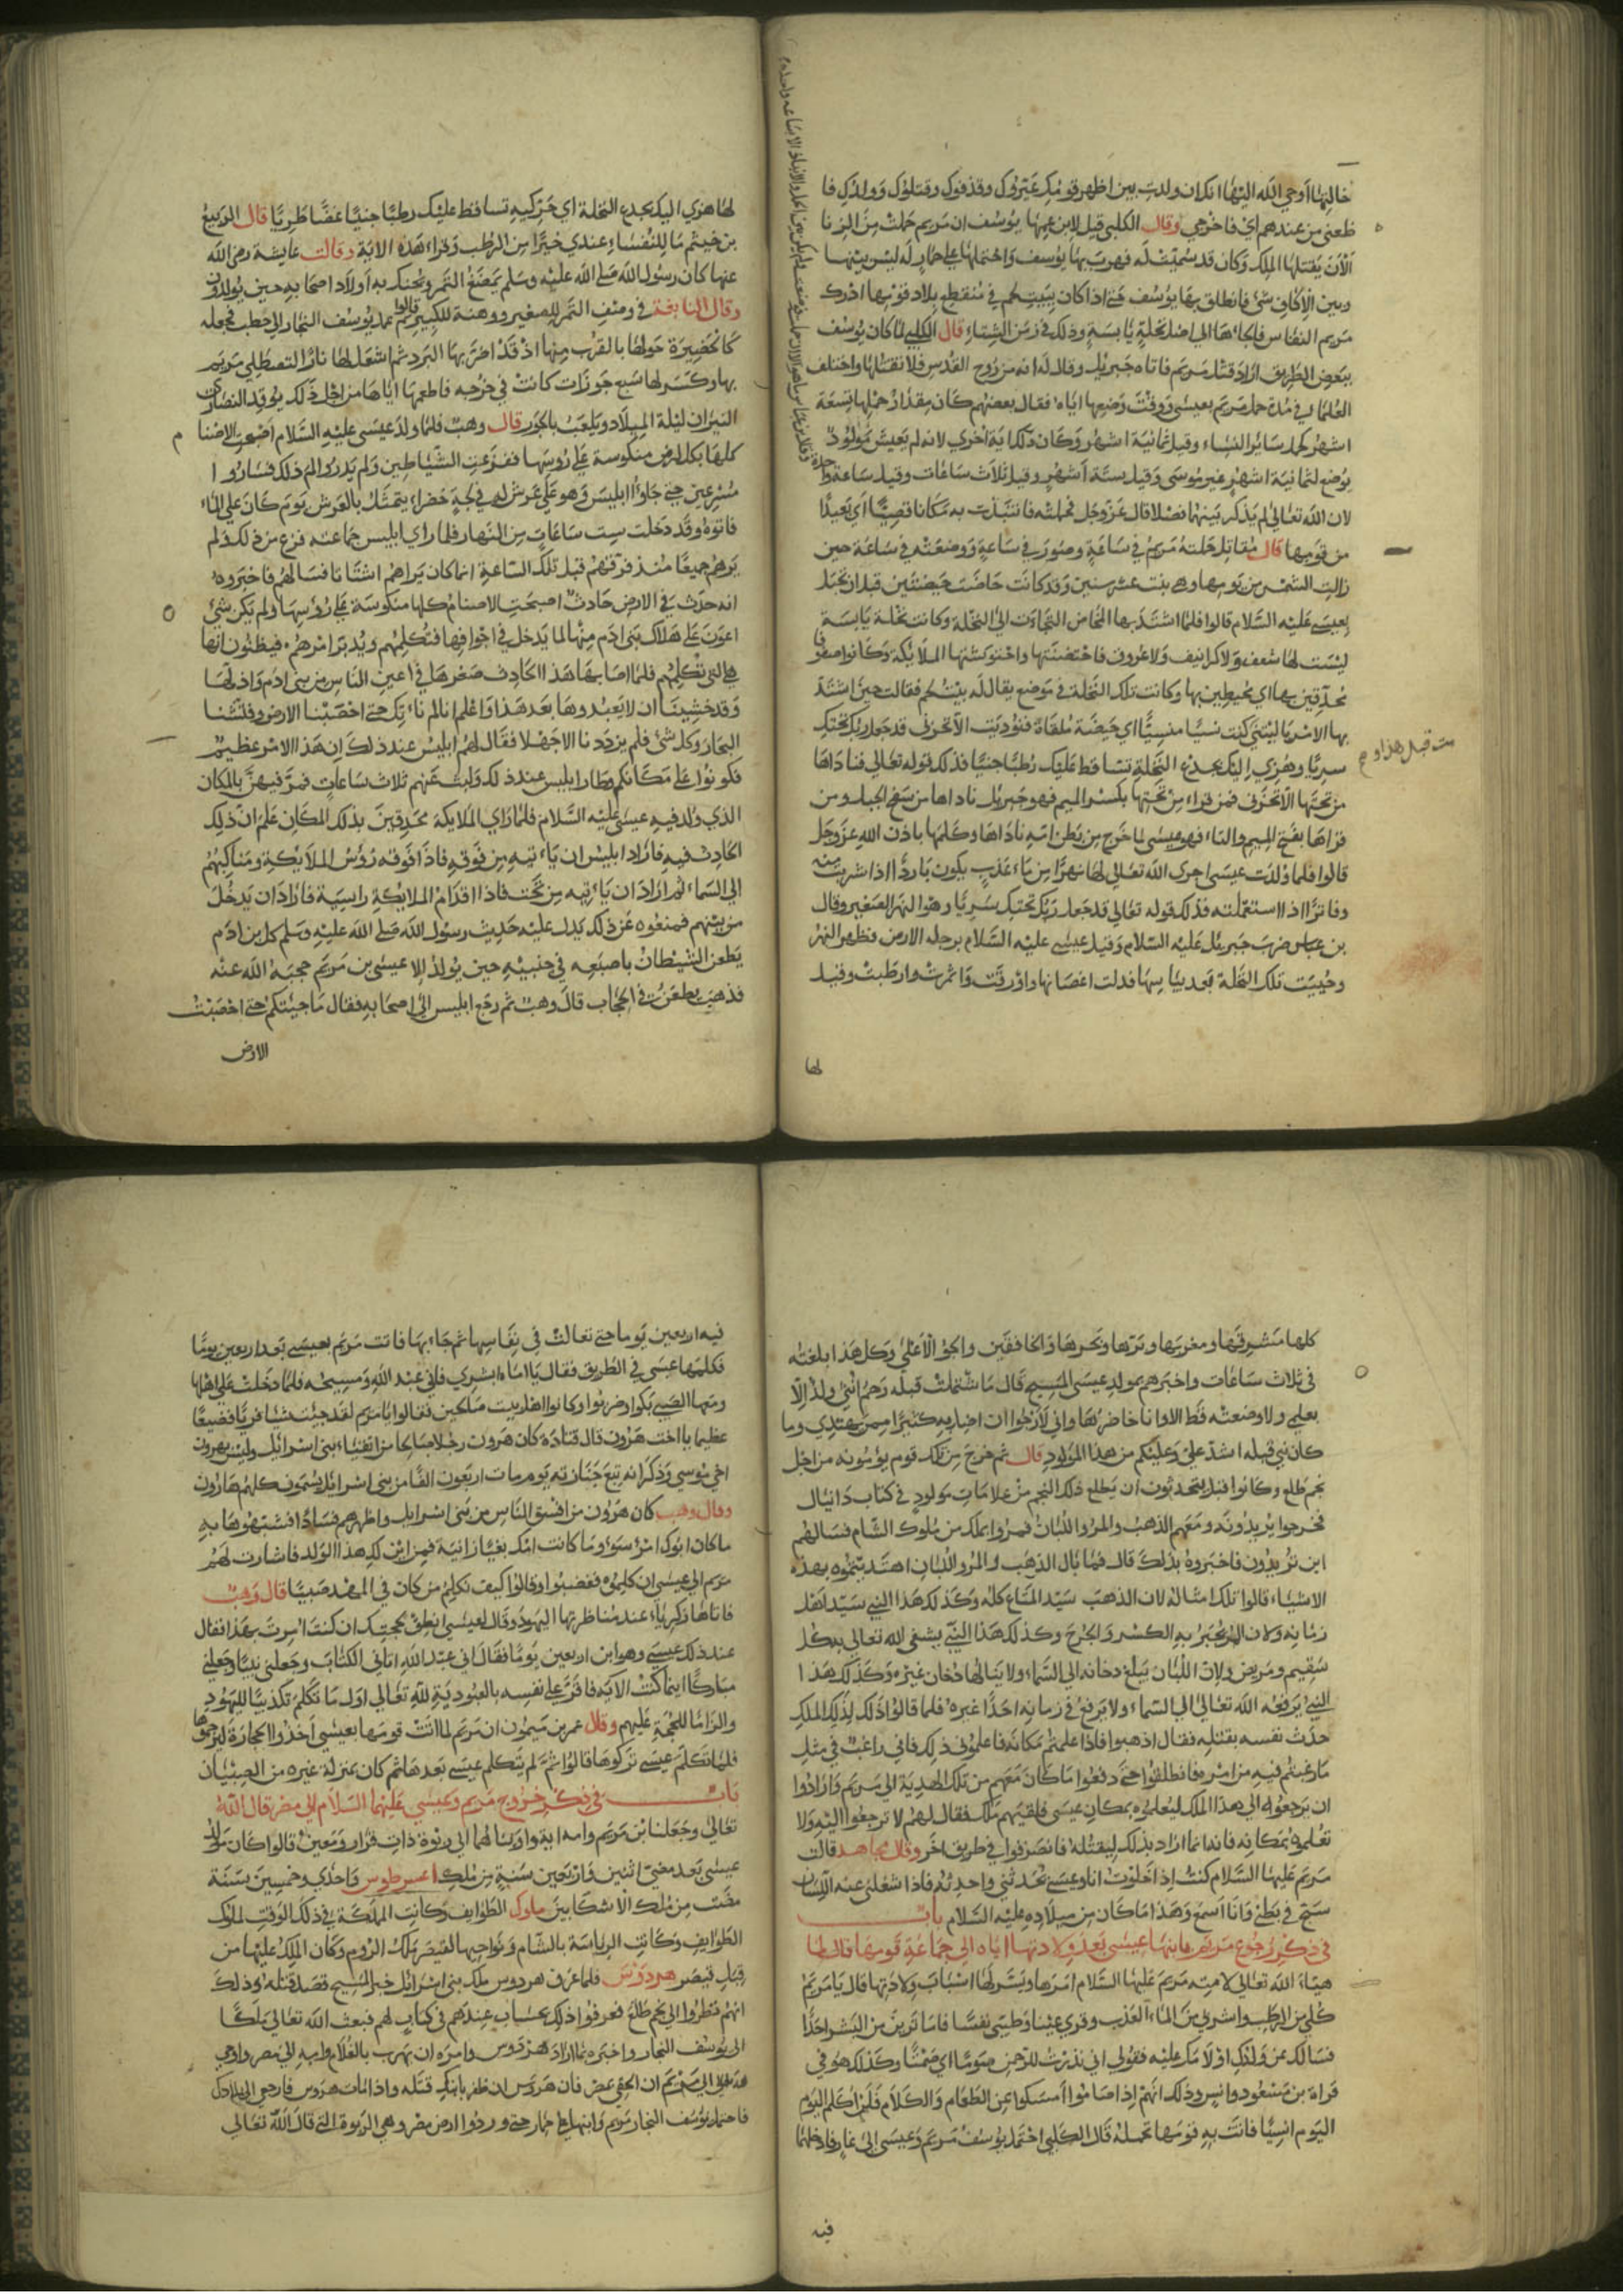 خالتها اوحي الله اليها انك ان ولدت بين اظهر قومك عيروك وقذفوك وقتلوك وولدك فا
ظعني من عندهم اي فاخرجي وقال الكلبي قيل لابن عمها يوسف ان مريم حملت من الزنا
الآن يقتلها الملك وكان قد سميت له فهرب بها يوسف واحتملها على حمار له ليس بينها
وبين الاكاف شئ فانطلق بها يوسف حتى اذا كان ببيت لحم في منقطع بلاد قومها ادرك
مريم النفاس فاجاءها الى اصل نخلة يابسة وذلك في زمن الشتاء قال الكلبي لما كان يوسف
ببعض الطريق اراد قتل مريم فاتاه جبريل وقال له انه من روح القدس فلا تقتلها واختلف
العلماء في مدة حمل مريم بعيسى ووقت وضعها اياه فقال بعضهم كان مقدار حملها تسعة
اشهر كحمل ساير النساء وقيل ثمانية اشهر وكان ذلك اية اخري لانه لم يعيش مولود
يوضع لثمانية اشهر غير موسى وقيل ستة اشهر وقيل ثلاث ساعات وقيل ساعة واحدة
لان الله تعالى لم يذكر بينهما فصلا قال عز وجل فحملته فانتبذت به مكانا قصيا اي بعيدا
من قومها قال مقاتل حملته مريم في ساعة وصور في ساعة ووضعته في ساعة حين
زالت الشمس من يومها وهي بنت عشر سنين وقد كانت حاضت حيضتين قبل ان تحبل
بعيسى عليه السلام قالوا فلما اشتد بها المخاض التجأت الى النخلة وكانت نخلة يابسة
ليست لها سعف ولا كرانيف ولا عروق فاحتضنتها واحتوشتها الملايكة وكانوا صفوفا
محدقين بها اي محيطين بها وكانت تلك النخلة في موضع يقال له بيت لحم فقالت حين اشتد
بها الامر يا ليتني كنت نسيا منسيا اي حيضة ملقاة فنوديت الا تحزني قد جعل ربك تحتك
سريا وهزي اليك بجذع النخلة تساقط عليك رطبا جنيا فذلك قوله تعالى فناداها
من تحتها الا تحزني فمن قراء من تحتها بكسر الميم فهو جبريل ناداها من سفح الجبل ومن
قراها بفتح الميم والتاء فهو عيسى لما خرج من بطن امه ناداها وكلمها باذن الله عز وجل
قالوا فلما ولدت عيسى اجرى الله تعالى لها نهرا من ماء عذب يكون باردا اذا شربت منه
وفاترا اذا استعملته فذلك قوله تعالى قد جعل ربك تحتك سريا وهو النهر الصغير وقال
بن عباس ضرب جبريل عليه السلام وقيل عيسى عليه السلام برجله الارض فظهر النهر
وحييت تلك النخلة بعد يبسها فدلت اغصانها واورقت واثمرت وارطبت وقيل
لها
لها هزي اليك بجذع النخلة اي حركيه تساقط عليك رطبا جنيا غضا طريا قال الربيع
بن خيثم ما للنفساء عندي خيرا من الرطب وقراء هذه الاية وقالت عايشة رضي الله
عنها كان رسول الله صلى الله عليه وسلم يمضغ التمر ويحنك به اولاد اصحابه حين يولدون
كالحضيرة حولها بالقرب منها اذ قد اضر بها البرد ثم اشعل لها نارا لتصطلي مريم
بها وكسر لها سبع جوزات كانت في خرجه فاطعمها اياها من اجل ذلك يوقد النصارى
النيران ليلة الميلاد ويلعب بالجوز قال وهب فلما ولد عيسى عليه السلام اصبحت الاصنا م
كلها بكل ارض منكوسة على روسها ففزعت الشياطين ولم يدروا لم ذلك فساروا
مسرعين حتى جاوا ابليس وهو على عرش له في لجة خضراء يتمثل بالعرش يوم كان على الماء
فاتوه وقد دخلت ست ساعات من النهار فلما راي ابليس جماعته فزع من ذلك ولم
يرهم جميعا منذ فرقهم قبل تلك الساعة انما كان يراهم اشتاتا فسالهم فاخبروه
انه حدث في الارض حادث اصبحت الاصنام كلها منكوسة على روسها ولم يكن شئ
اعون على هلاك بني ادم منها لما يدخل في اجوافها فتكلمهم ويدبر امرهم فيظنون انها
هي التي تكلمهم فلما اصابها هذا الحادث صغرها في اعين الناس من بني ادم واذلها
وقد خشينا ان لا يعبدوها بعد هذا واعلم انا لم نأتك حتى احصينا الارض وفلتشنا
البحار وكل شئ فلم يزددنا الا جهلا فقال لهم ابليس عند ذلك ان هذا الامر عظيم
فكونوا على مكانكم وطار ابليس عند ذلك ولبث عنهم ثلاث ساعات فمر فيهن بالمكان
الذي ولد فيه عيسى عليه السلام فلما راي الملايكة محدقين بذلك المكان علم ان ذلك
الحادث فيه فاراد ابليس ان يأتيه من فوقه فاذا فوقه رؤس الملايكة ومناكبهم
الى السماء ثم اراد ان يأتيه من تحت فاذا اقدام الملايكة راسية فاراد ان يدخل
من بينهم فمنعوه عن ذلك يدل عليه حديث رسول الله صلى الله عليه وسلم كل بن ادم
يطعن الشيطان باصبعه في جنبيه حين يولد الا عيسى بن مريم حجبه الله عنه
فذهب يطعن في الحجاب قال وهب ثم رجع ابليس الى اصحابه فقال ما جيتكم حتى احصيت
الارض
كلها مشرقها ومغربها وبرها وبحرها والخافقين والجو الاعلى وكل هذا بلغته
في ثلاث ساعات واخبرهم بمولد عيسى المسيح قال ما شتملت قبله رحم انثى ولد الا
بعلمي ولا وضعته قط الا وانا حاضرتها واني لارجوا ان اضل به كثيرا ممن يهتدي وما
كان نبي قبله اشد علي وعليكم من هذا المولود قال ثم خرج من تلك قوم يؤمونه من اجل
نجم طلع وكانوا قبل يتحدثون ان يطلع ذلك النجم من علامات مولود في كتاب دانيال
فخرجوا يريدونه ومعهم الذهب والمر واللبان فمروا بملك من ملوك الشام فسالهم
اين تريدون فاخبروه بذلك قال فما بال الذهب والمر واللبان اهتديتموه بهذه
الاشياء قالوا تلك امثاله لان الذهب سيد المتاع كله وكذلك هذا النبي سيد اهل
زمانه ولان المر يجبر به الكسر والجرح وكذلك هذا النبي يشفي الله تعالى به كل
سقيم ومريض ولان اللبان يبلغ دخانه الى السماء ولا ينالها دخان غيره وكذلك هذا
النبي يرفعه الله تعالى الى السماء ولا يرفع في زمانه احدا غيره فلما قالوا ذلك لذلك الملك
حدث نفسه بقتله فقال اذهبوا فاذا علمتم مكانه فاعلموني ذلك فاني راغب في مثل
ما رغبتم فيه من امره فانطلقوا حتى دفعوا ما كان معهم من تلك الهدية الى مريم وارادوا
ان يرجعوا الى هذا الملك ليعلموه بمكان عيسى فلقيهم ملك فقال لهم لا ترجعوا اليه ولا
تعلموه بمكانه فانه انما اراد بذلك ليقتله فانصرفوا في طريق اخر وقال مجاهد قالت
مريم عليها السلام كنت اذا خلوت انا وعيسى حدثني وحدثته فاذا شغلني عنه انسان
سبح في بطني وانا اسمع وهذا ما كان من ميلاده عليه السلام باب
في ذكر رجوع مريم بابنها عيسى بعد ولادتها اياه الى جماعة قومها قال لما
هياء الله تعالى لامته مريم عليها السلام امرها ويسر لها اسباب ولادتها قال يا مريم
كلي من الرطب واشربي من الماء العذب وقري عينا وطيبي نفسا فاما ترين من البشر احدا
فسالك عن ولدك اولامك عليه فقولي اني نذرت للرحمن صوما اي صمتا وكذلك هو في
قراة بن مسعود وانس وذلك انهم اذا صاموا امسكوا عن الطعام والكلام فلن اكلم اليوم
اليوم انسيا فاتت به قومها تحمله قال الكلبي احتمل يوسف مريم وعيسى الى غار فادخلهما
فيه
فيه اربعين يوما حتى تعالت في نفاسها ثم جاء بها فاتت مريم بعيسى بعد اربعين يوما
فكلمها عيسى في الطريق فقال يا اماه ابشري فاني عبد الله ومسيحه فلما دخلت على اهلها
ومعها الصبي بكوا وحزنوا وكانوا اهل بيت صالحين فقالوا يا مريم لقد جئت شئا فريا فضيعا
عظيما يا اخت هرون قال قتادة كان هرون رجلا صالحا من اتقياء بني اسرائيل وليس بهرون
اخي موسي وذكر انه تبع جنازته يوم مات اربعون الفا من بني اسرائيل يسمون كلهم هارون
وقال وهب كان هرون من افسق الناس من بني اسرايل واظهرهم فسادا فشبهوها به
ما كان ابوك امرء سوء وما كانت امك بغيا زانية فمن اين لك هذا الولد فاشارت لهم
مريم الى عيسى ان كلموه فغضبوا وقالوا كيف نكلم من كان في المهد صبيا قال وهب
فاتاها زكرياء عند مناظرتها اليهود وقال لعيسى انطق بحجتك ان كنت امرت بهذا فقال
عند ذلك عيسى وهو ابن اربعين يوما فقال اني عبد الله اتاني الكتاب وجعلني نبيا وجعلني
مباركا اينما كنت الاية فاقر على نفسه بالعبودية لله تعالى اول ما تكلم تكذيبا لليهود
والزاما للحجة عليهم وقال عمر بن ميمون ان مريم لما اتت قومها بعيسى اخذوا الحجارة ليرجموها
فلما تكلم عيسى تركوها قالوا ثم لم يتكلم عيسى بعدها ثم كان بمنزلة غيره من الصبيان
باب في ذكر خروج مريم وعيسى عليهما السلام الى مصر قال الله
تعالى وجعلنا ابن مريم وامه اية واويناهما الى ربوة ذات قرار ومعين قالوا كان مولد
عيسى بعد مضي اثنين واربعين سنة من ملك اغسطوس واحدي وخمسين سنة
مضت من ملك الاشكانيين ملوك الطوايف وكانت المملكة في ذلك الوقت لملوك
الطوايف وكانت الرياسة بالشام ونواحيها لقيصر ملك الروم وكان الملك عليها من
قبل قيصر هردوس فلما عرف هردوس ملك بني اسرائيل خبر المسيح قصد قتله وذلك
انهم نظروا الى نجم طلع فعرفوا ذلك بحساب عندهم في كتاب لهم فبعث الله تعالى ملكا
الى يوسف النجار واخبره بما اراد هردوس وامره ان يهرب بالغلام وامه الى مصر واوحي
الى مريم ان الحقي بمصر فان هردوس ان ظفر بابنك قتله واذا مات هردوس فارجعي الى بلادك
فاحتمل يوسف النجار مريم وابنها على حمار حتى وردوا ارض مصر وهي الربوة التي قال الله تعالى